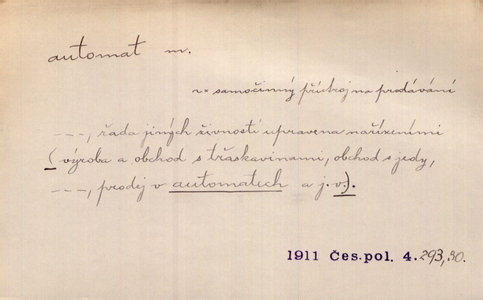 automat m.
r× samočinný přístroj na prodávání
---, řada jiných živností upravena nařízeními
(výroba a obchod s třaskavinami, obchod s jedy,
---, prodej v automatech a j. v.).
1911 Čes. pol. 4. 293, 30.